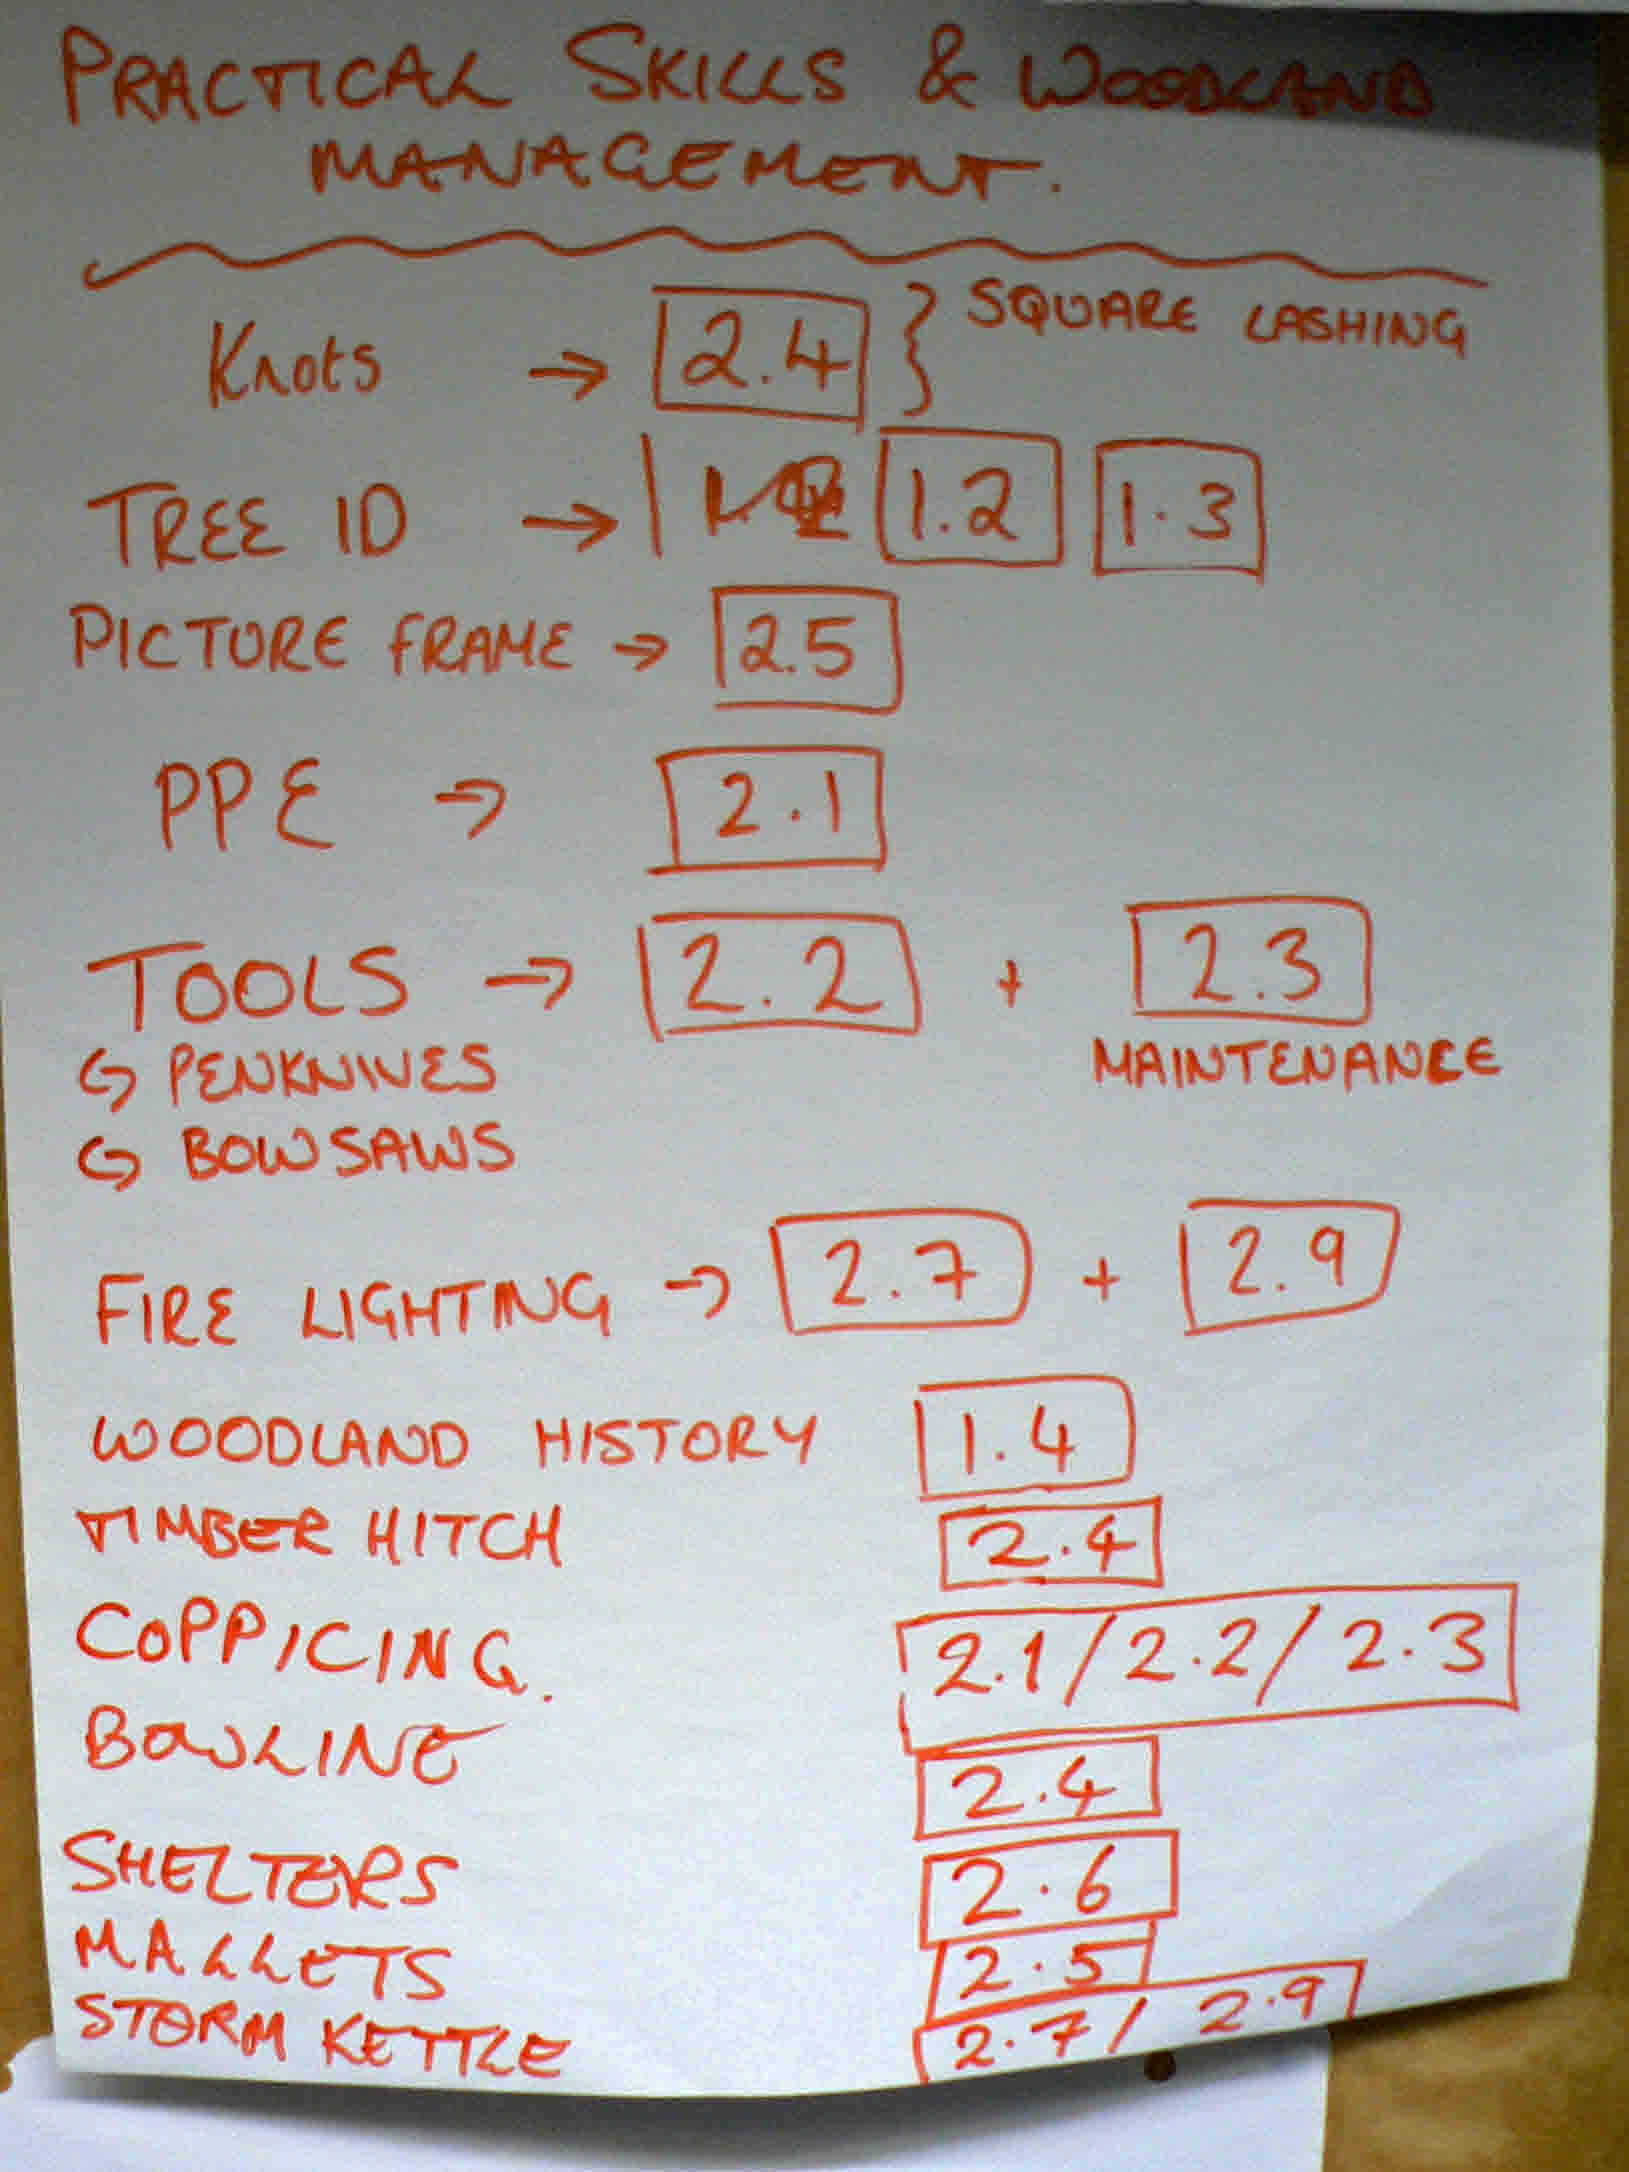 PRACTICAL SKILLS & WOODLAND
MANAGEMENT.
Knots → 2.4 } SQUARE LASHING
TREE ID → 1.2 1.3
PICTURE FRAME → 2.5
PPE → 2.1
TOOLS → 2.2 + 2.3
↪ PENKNIVES MAINTENANCE
↪ BOWSAWS
FIRE LIGHTING → 2.7 + 2.9
WOODLAND HISTORY 1.4
TIMBER HITCH 2.4
COPPICING. 2.1/2.2/2.3
BOWLINE 2.4
SHELTERS 2.6
MALLETS 2.5
STORM KETTLE 2.7/2.9